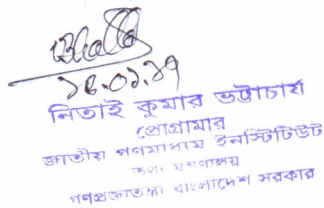 নিতাই কুমার ভট্টাচার্য
প্রোগ্রামার
জাতীয় গণমাধ্যম ইনস্টিটিউট
তথ্য মন্ত্রণালয়
গণপ্রজাতন্ত্রী বাংলাদেশ সরকার